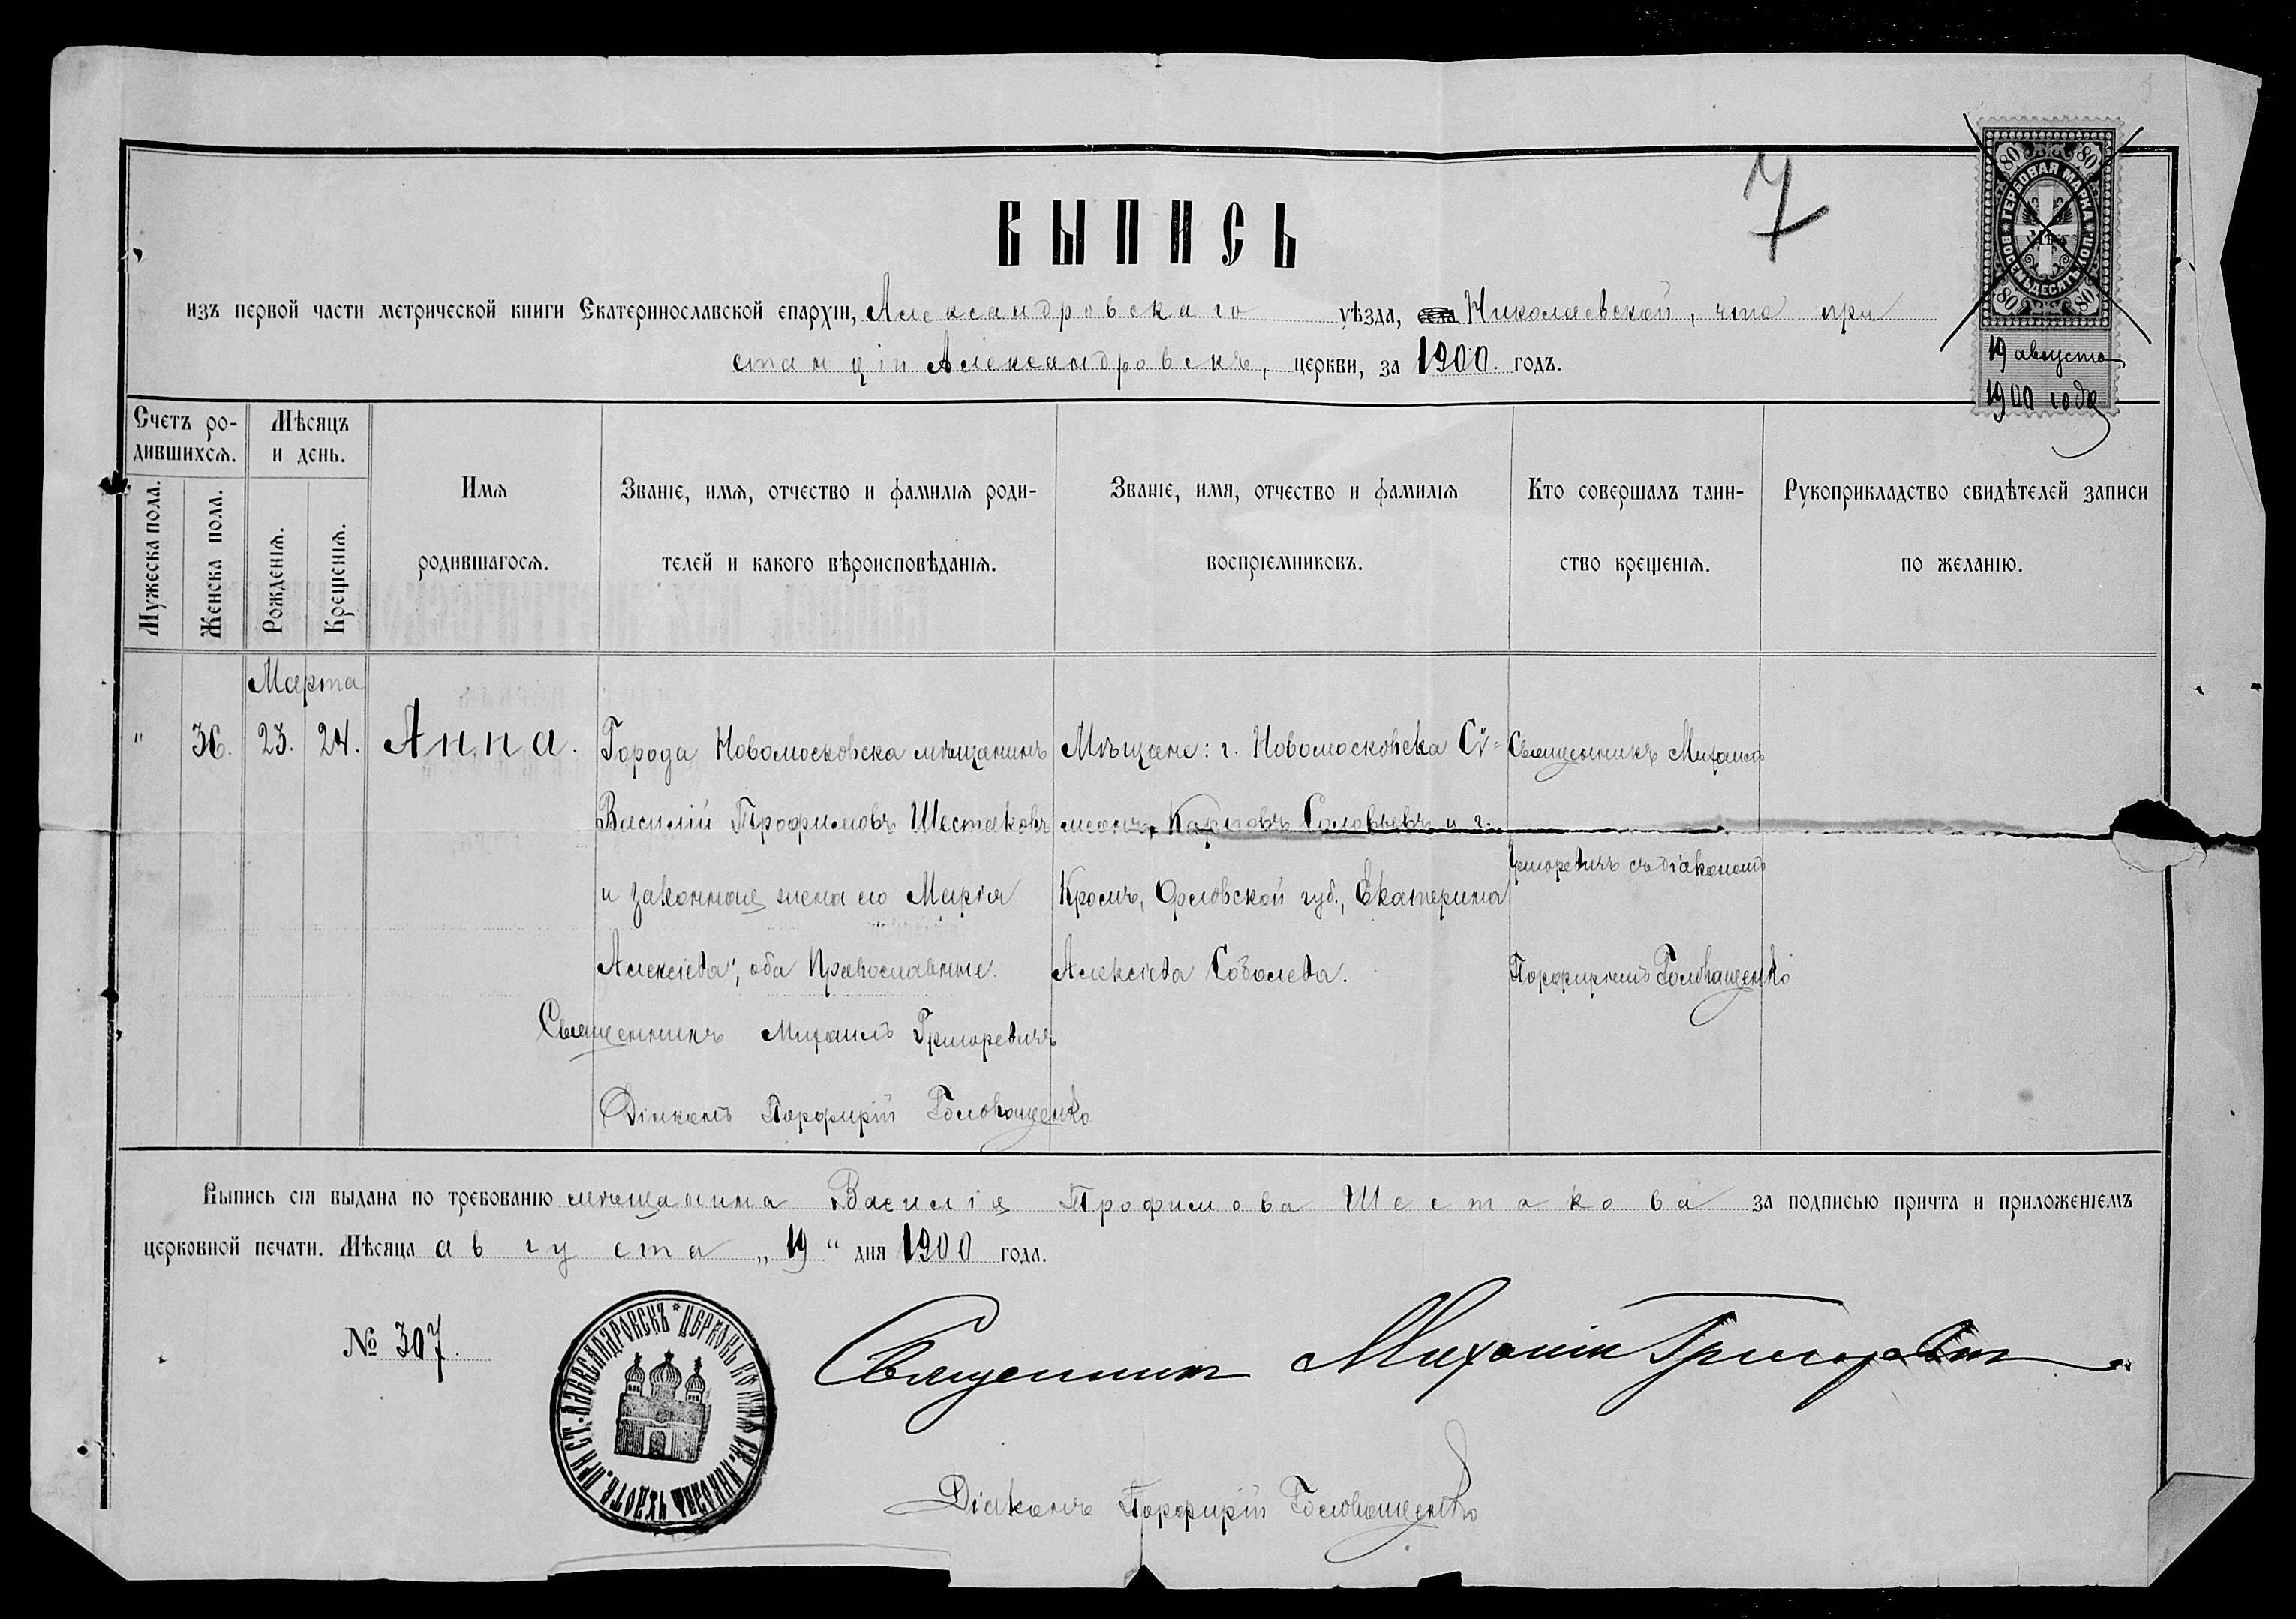 7
ГЕРБОВАЯ МАРКА
ВОСЕМЬДЕСЯТЪ КОП.
80 80
80 80
19 августа
1900 года
ВЫПИСЬ
изъ первой части метрической книги Екатеринославской епархіи, Александровскаго уѣзда, села Николаевской, что при
станціи Александровскъ, церкви, за 1900. годъ.
Счетъ ро-
дившихся.
Мужеска пола.
Женска пола.
Мѣсяцъ
и день.
Рожденія.
Крещенія.
Имя
родившагося.
Званіе, имя, отчество и фамилія роди-
телей и какого вѣроисповѣданія.
Званіе, имя, отчество и фамилія
воспріемниковъ.
Кто совершалъ таин-
ство крещенія.
Рукоприкладство свидѣтелей записи
по желанію.
Марта
" 36. 23. 24. Анна.
Города Новомосковска мѣщанинъ
Василій Трофимовъ Шестаковъ
и законная жена его Марія
Алексіева, оба Православные.
Священникъ Михаилъ Григоревичъ
Діаконъ Порфирій Головащенко
Мѣщане: г. Новомосковска Сѵ=
меонъ Карповъ Соловьевъ и г.
Кромъ, Орловской губ., Екатерина
Алексіева Соболева.
Священникъ Михаилъ
Григоревичъ съ діакономъ
Порфиріемъ Головащенко
Выпись сія выдана по требованію мѣщанина Василія Трофимова Шестакова за подписью причта и приложеніемъ
церковной печати. Мѣсяца августа „19“ дня 1900 года.
№ 307.
ЦЕРКОВЬ ВО ИМЯ СВ. НИКОЛАЯ ЧУДОТВ. ПРИ СТ. АЛЕКСАНДРОВСКЪ *
Священникъ Михаилъ Григоревичъ
Діаконъ Порфирій Головащенко